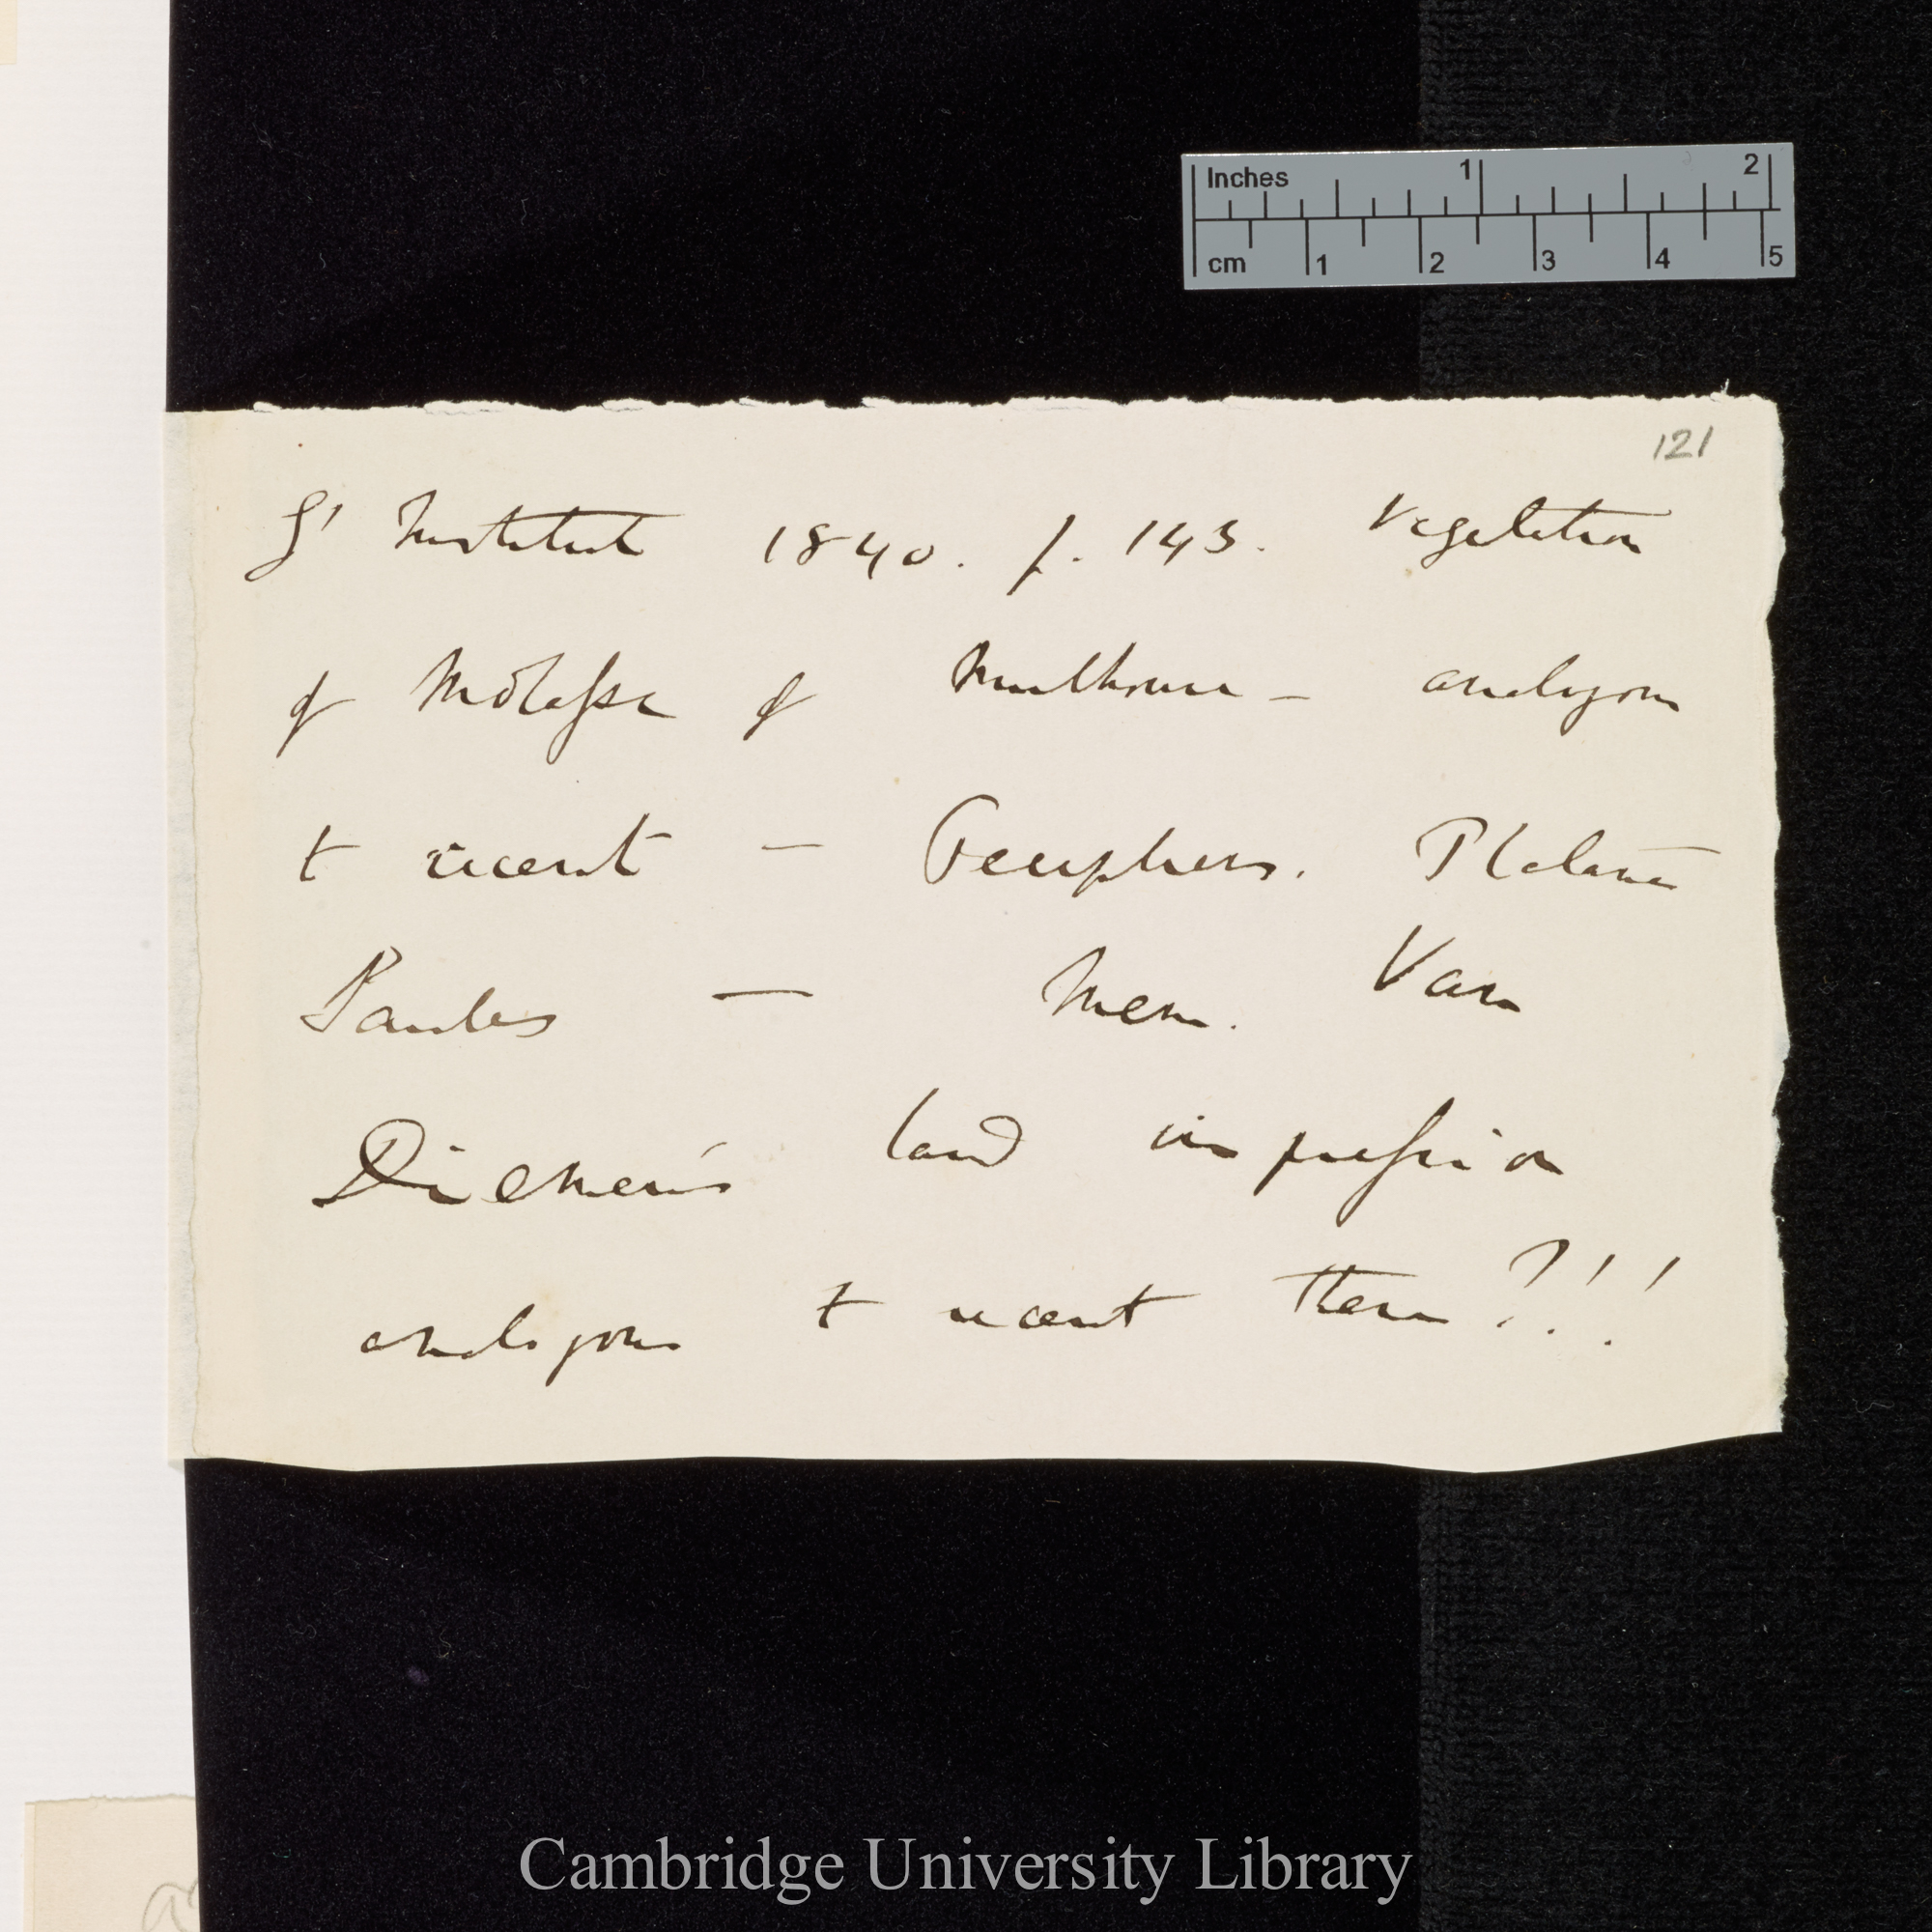 Inches 1 2
cm 1 2 3 4 5
121
L' Institut 1840. p. 143. Vegetation
of Molasse of Mulhouse – analogous
to recent – Peupliers. Platane
Saules — Mem. Van
Diemen's land impression
analogous to recent there?!!
Cambridge University Library